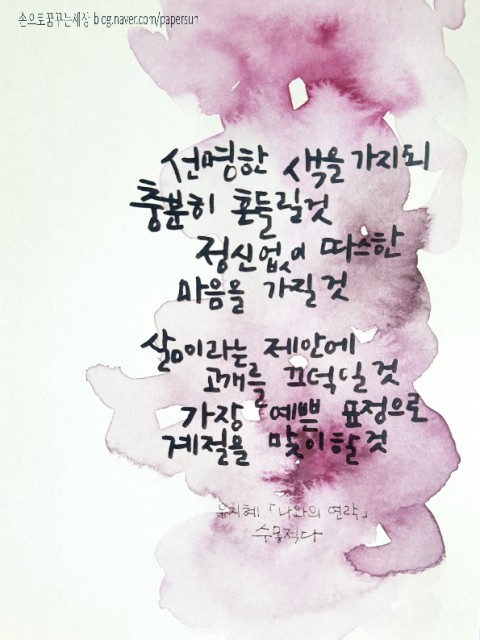 손으로꿈꾸는세상 blog.naver.com/papersun
선명한 색을 가지되
충분히 흔들릴것
정신없이 따스한
마음을 가질 것
삶이라는 제안에
고개를 끄덕일 것
가장 예쁜 표정으로
계절을 맞이할 것
유지혜 「나와의 연락」
수몽적다